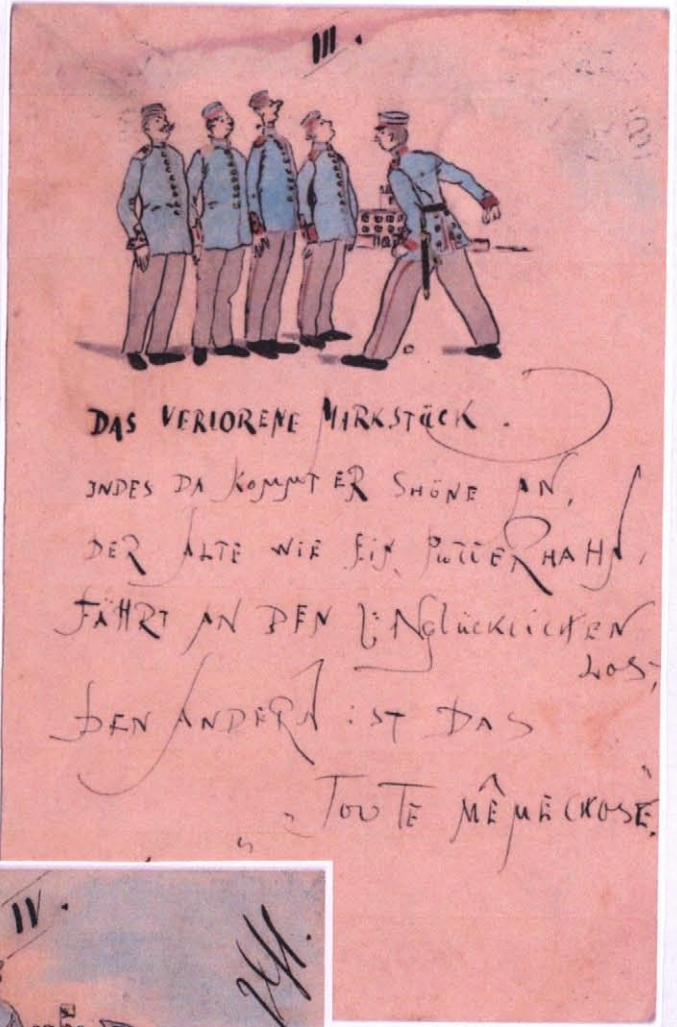 III.
DAS VERLORENE MARKSTÜCK.
INDES DA KOMMT ER SHÖNE AN,
DER ALTE WIE EIN PUTTERHAHN,
FÄHRT AN DEN UNGlÜCKLICHEN
LOS;
DEN ANDERN IST DAS
„TOUTE MÊME CHOSE."
IV.